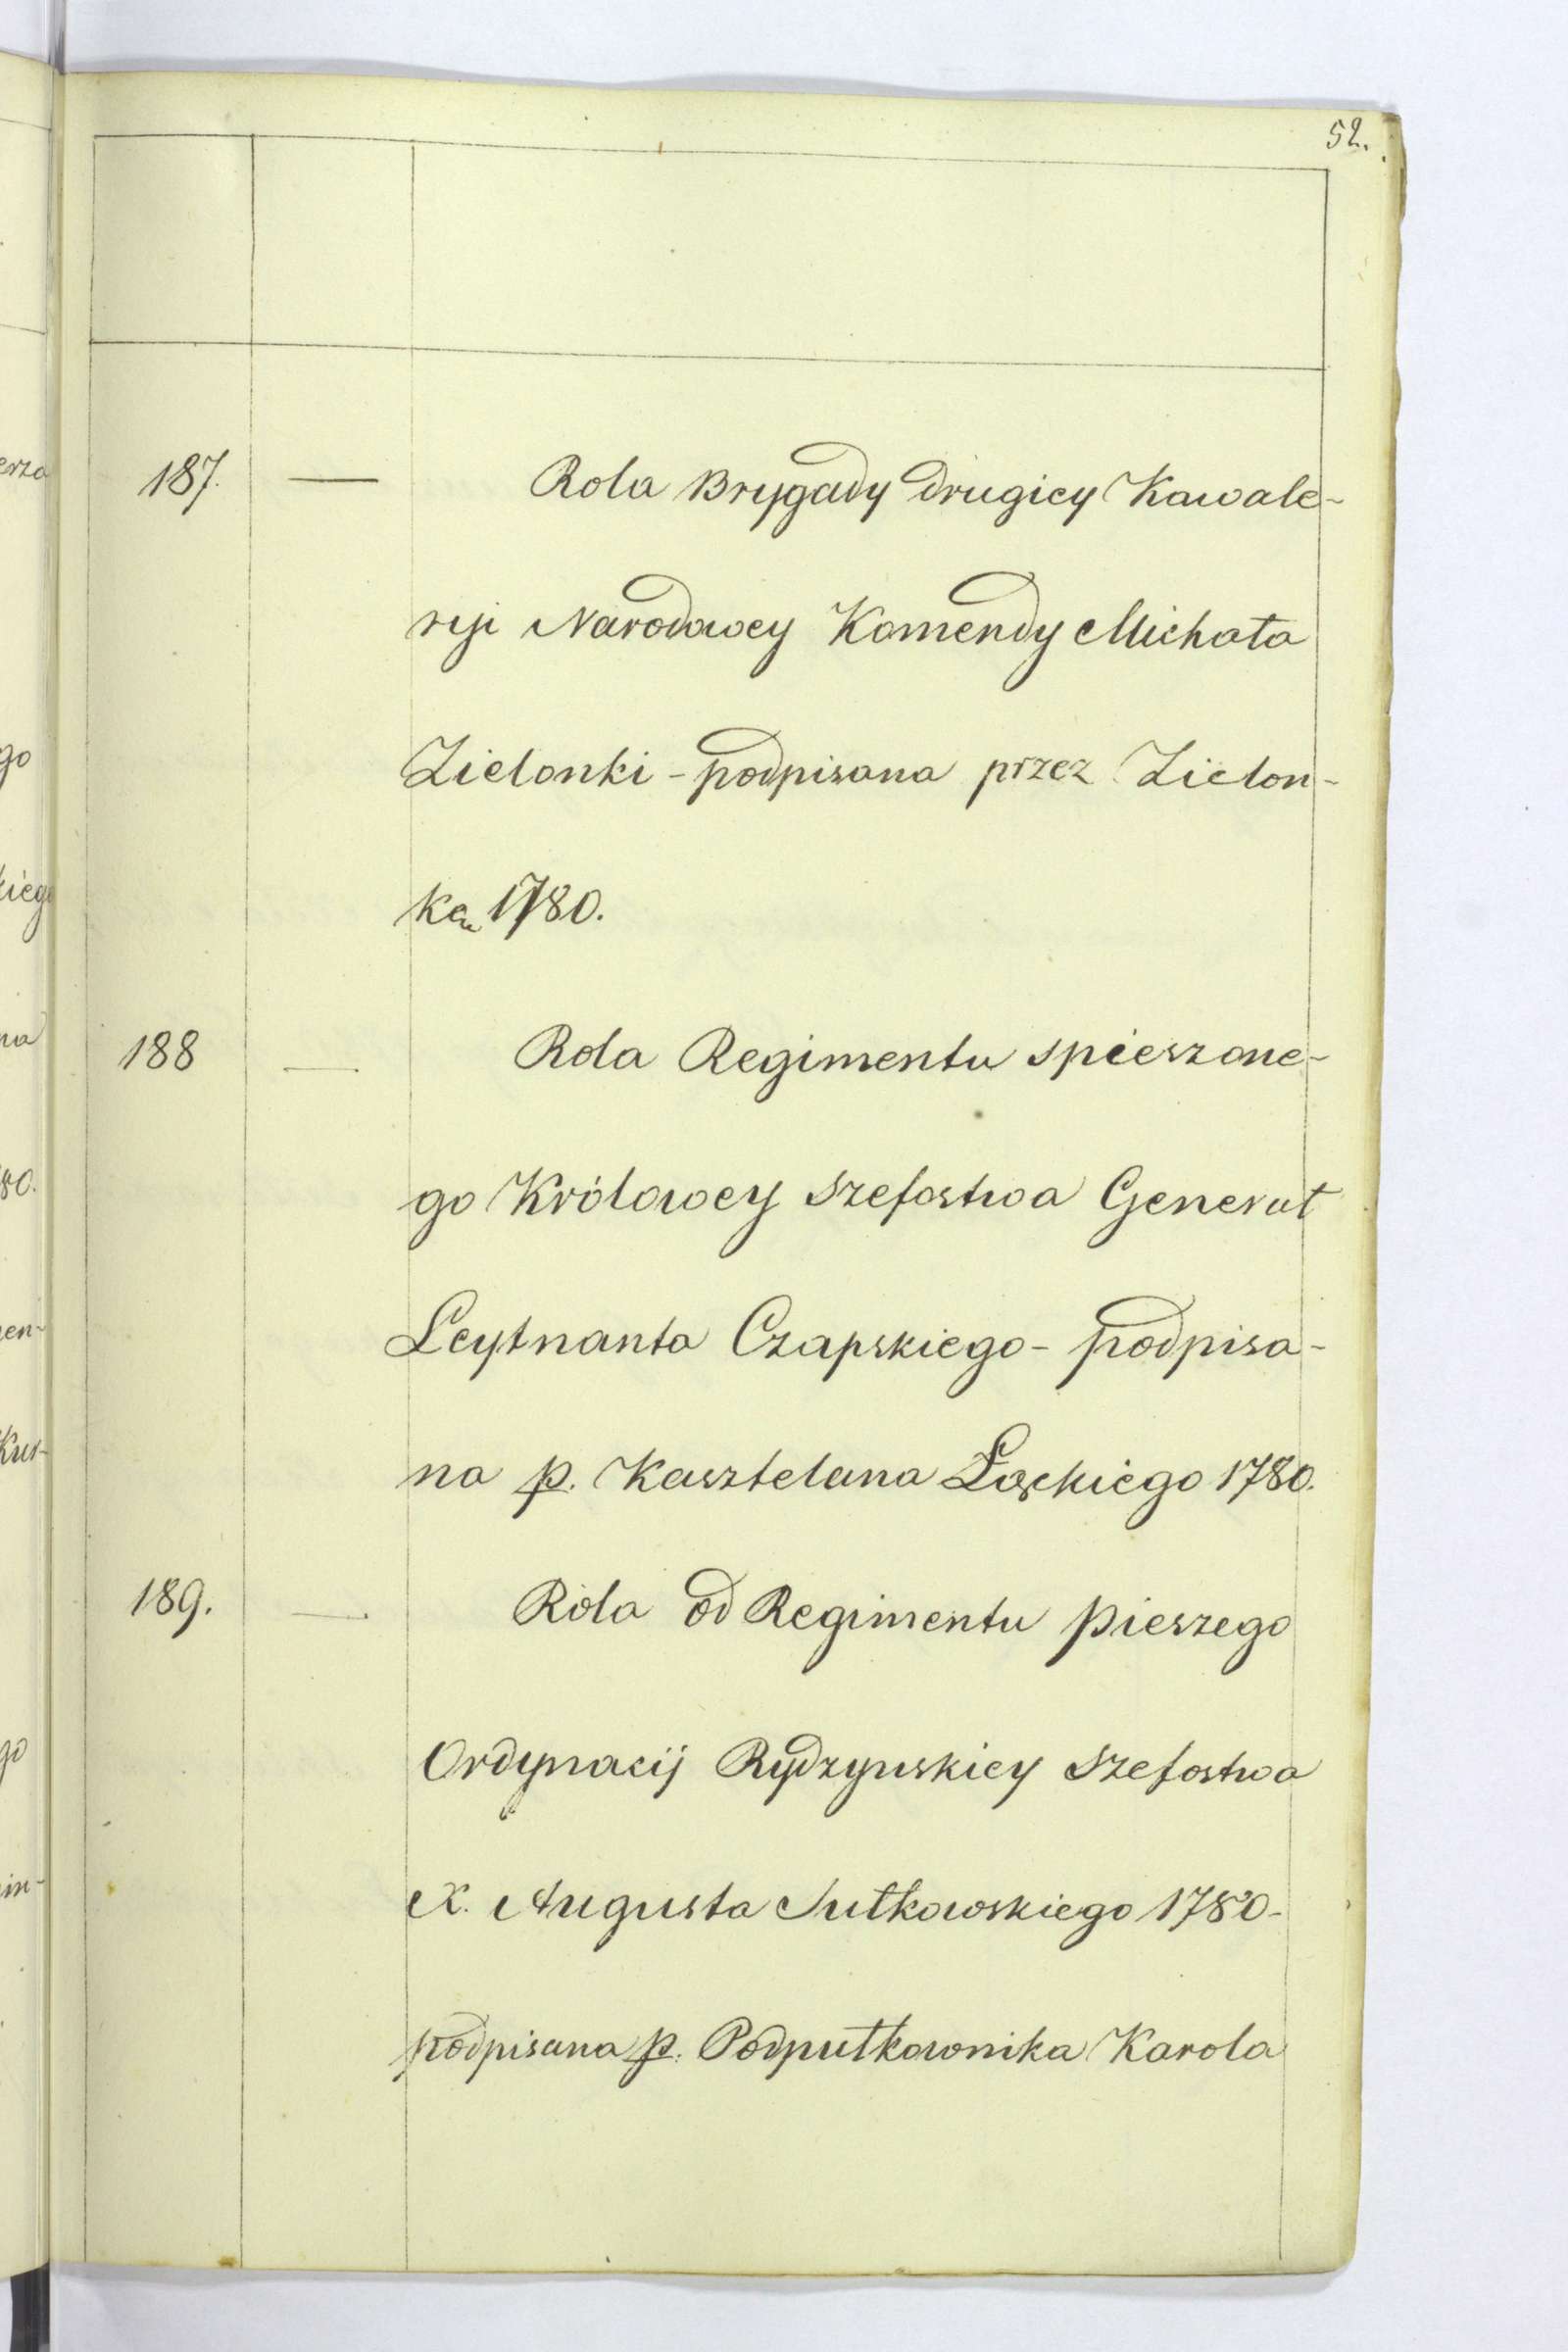 52.
187. — Rola Brygady drugiey Kawale-
ryi Narodowey Komendy Michała
Zielonki - podpisana przez Zielon-
kę 1780.
188 — Rola Regimentu spieszone-
go Królowey szefostwa Generał
Leytnanta Czapskiego - podpisa-
na p. Kasztelana Łąckiego 1780.
189. — Rola od Regimentu pieszego
Ordynacij Rydzynskiey szefostwa
X. Augusta Sułkowskiego 1780-
podpisana p. Podpułkownika Karola